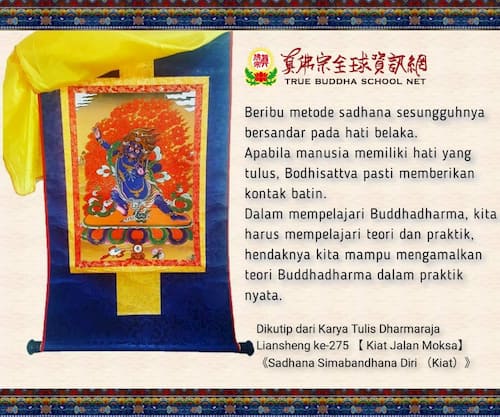 真佛宗全球資訊網
TRUE BUDDHA SCHOOL NET
Beribu metode sadhana sesungguhnya
bersandar pada hati belaka.
Apabila manusia memiliki hati yang
tulus, Bodhisattva pasti memberikan
kontak batin.
Dalam mempelajari Buddhadharma, kita
harus mempelajari teori dan praktik,
hendaknya kita mampu mengamalkan
teori Buddhadharma dalam praktik
nyata.
Dikutip dari Karya Tulis Dharmaraja
Liansheng ke-275 【 Kiat Jalan Moksa】
《Sadhana Simabandhana Diri （Kiat）》